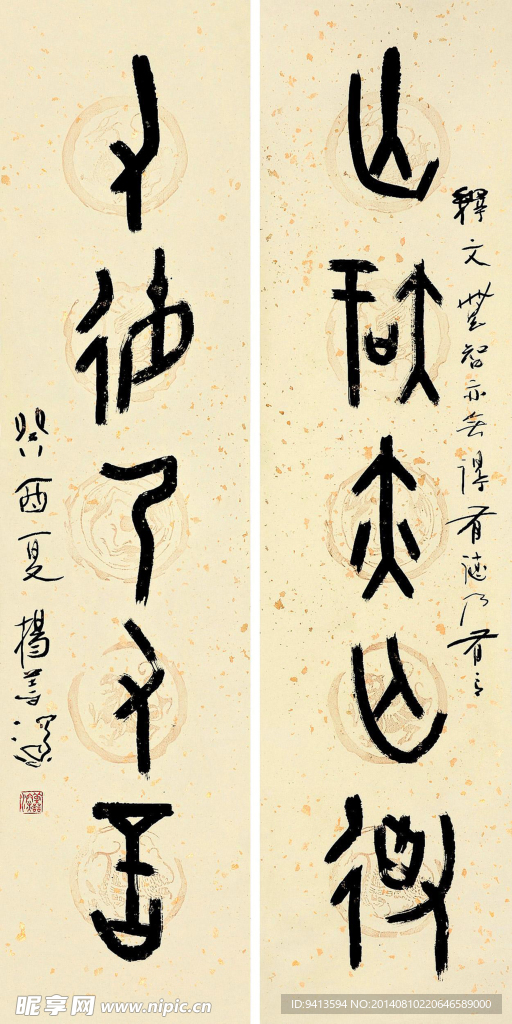 亡智亦亡得
釋文無智亦無得有德乃有言
又德乃又言
癸酉夏楊善深
昵享网 www.nipic.cn
ID:9413594 NO:20140810220646589000